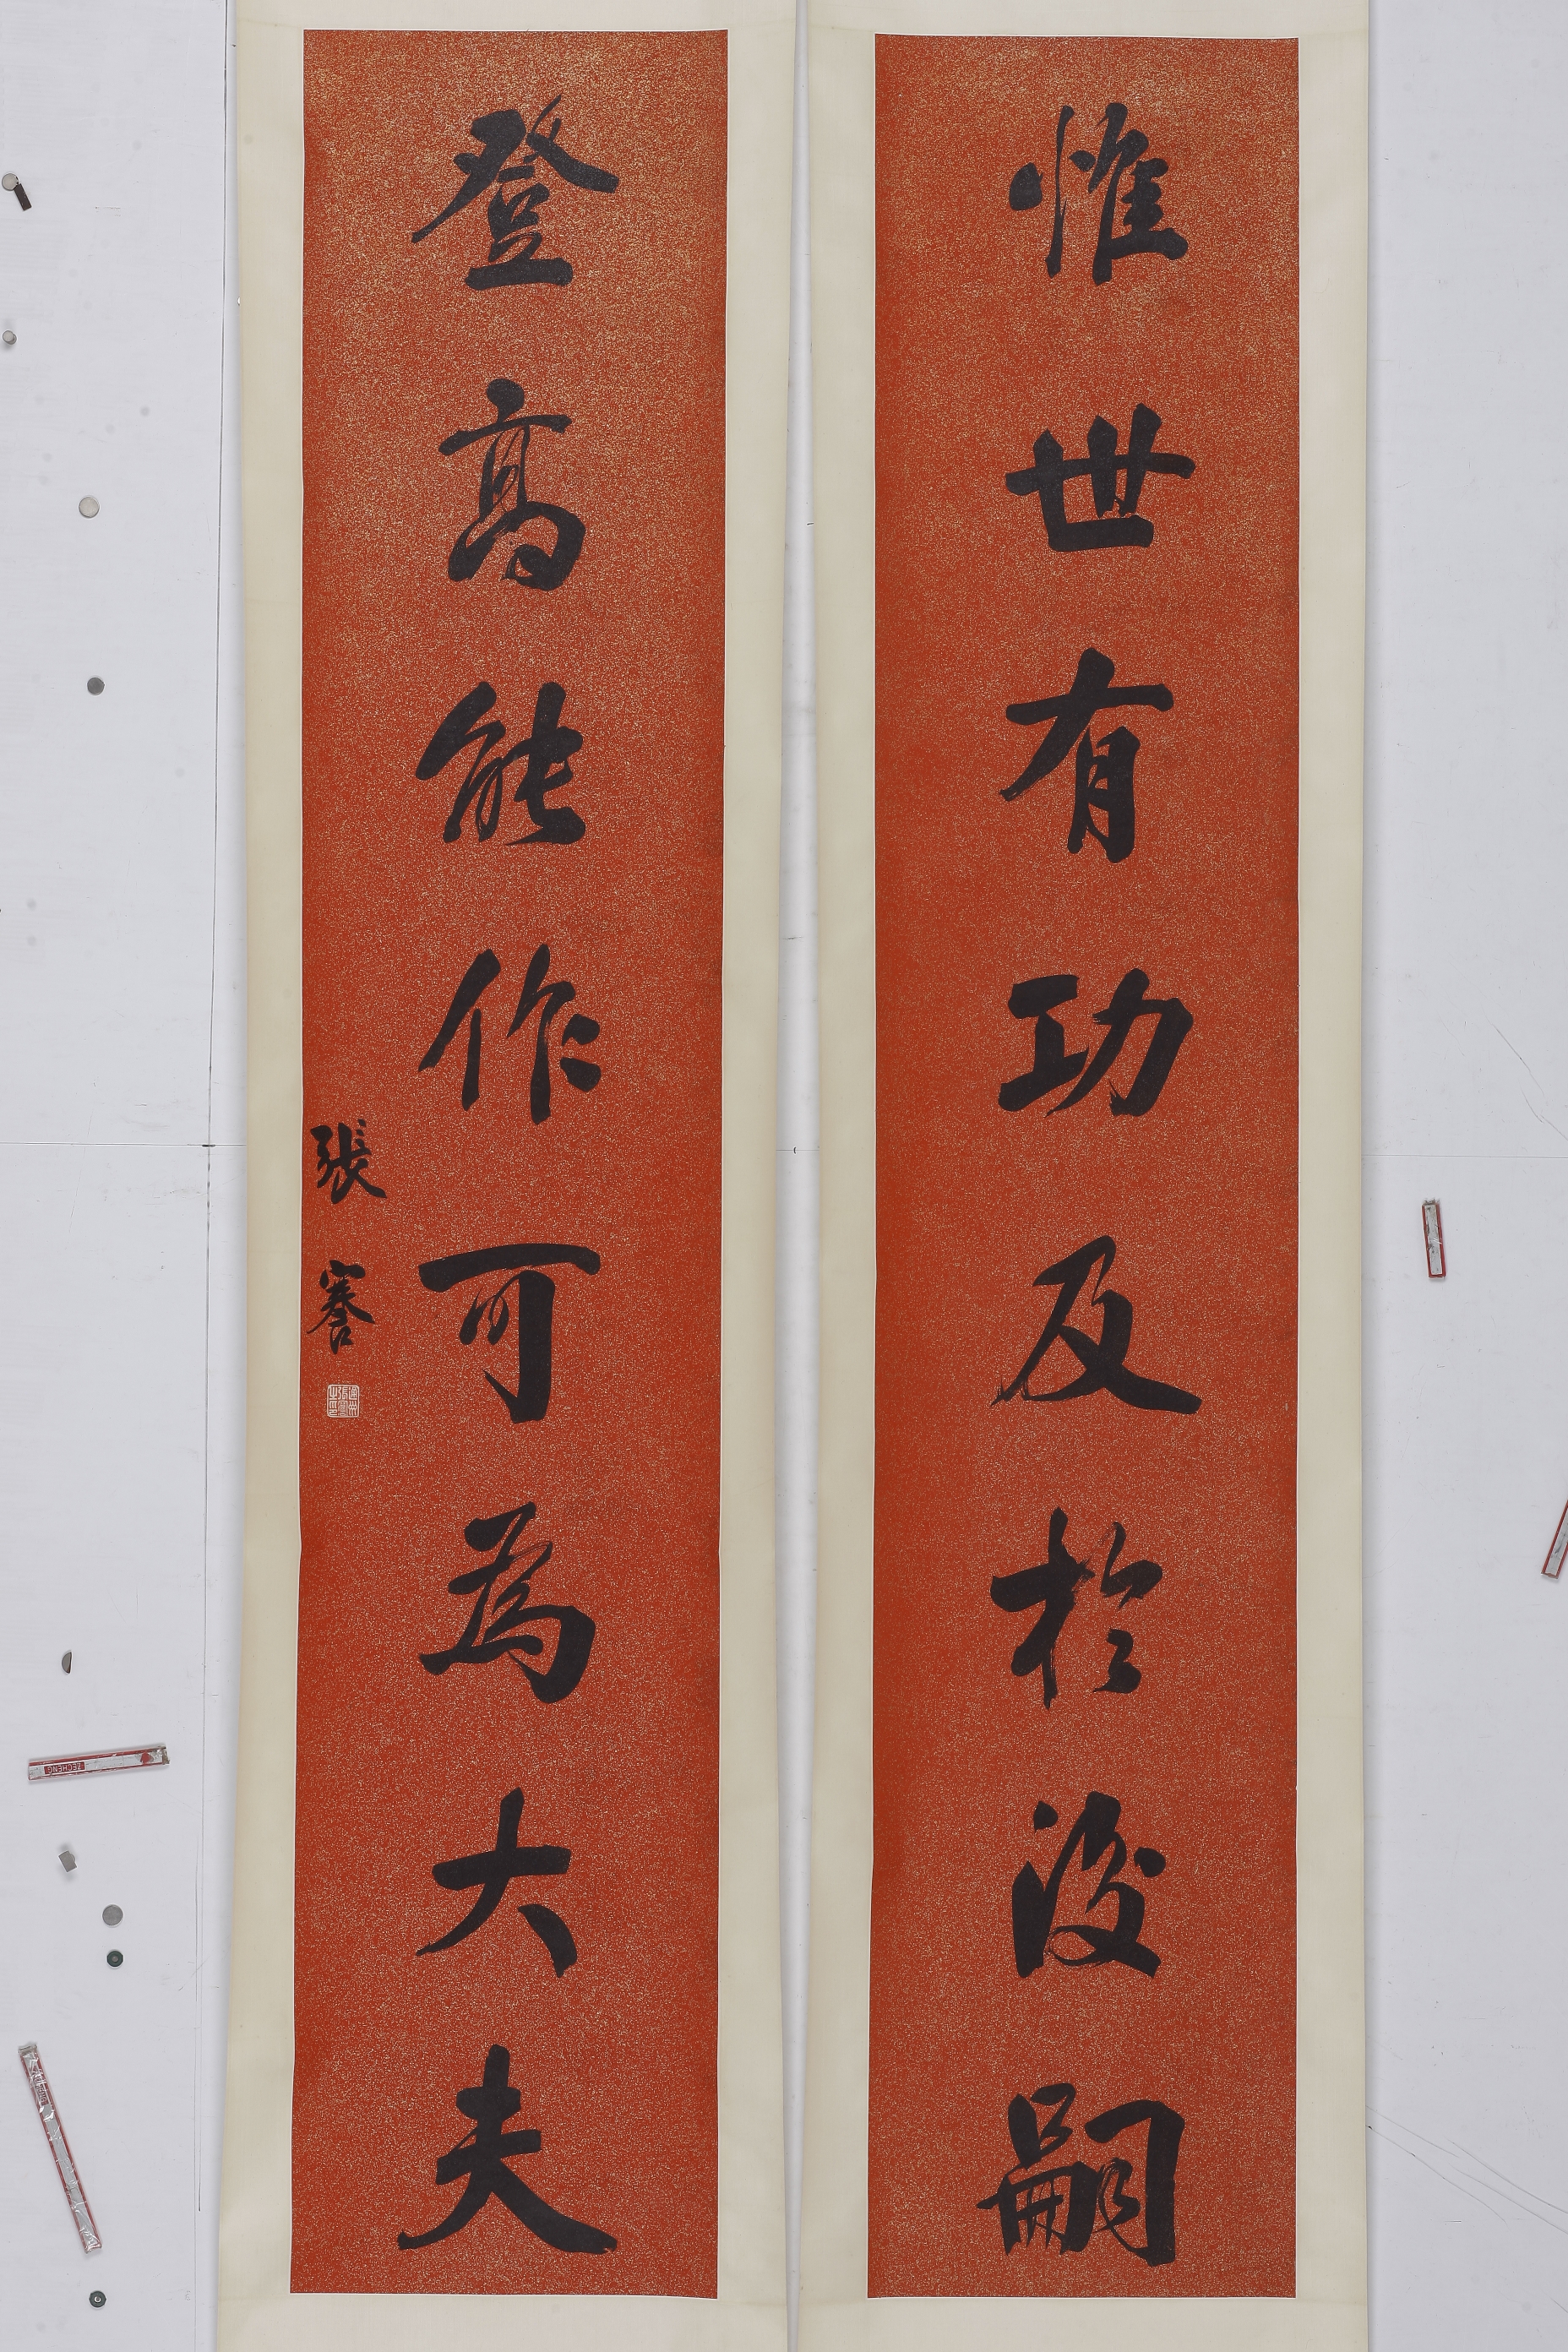 惟世有功及於後嗣
登高能作可為大夫
張謇
ZECHENG